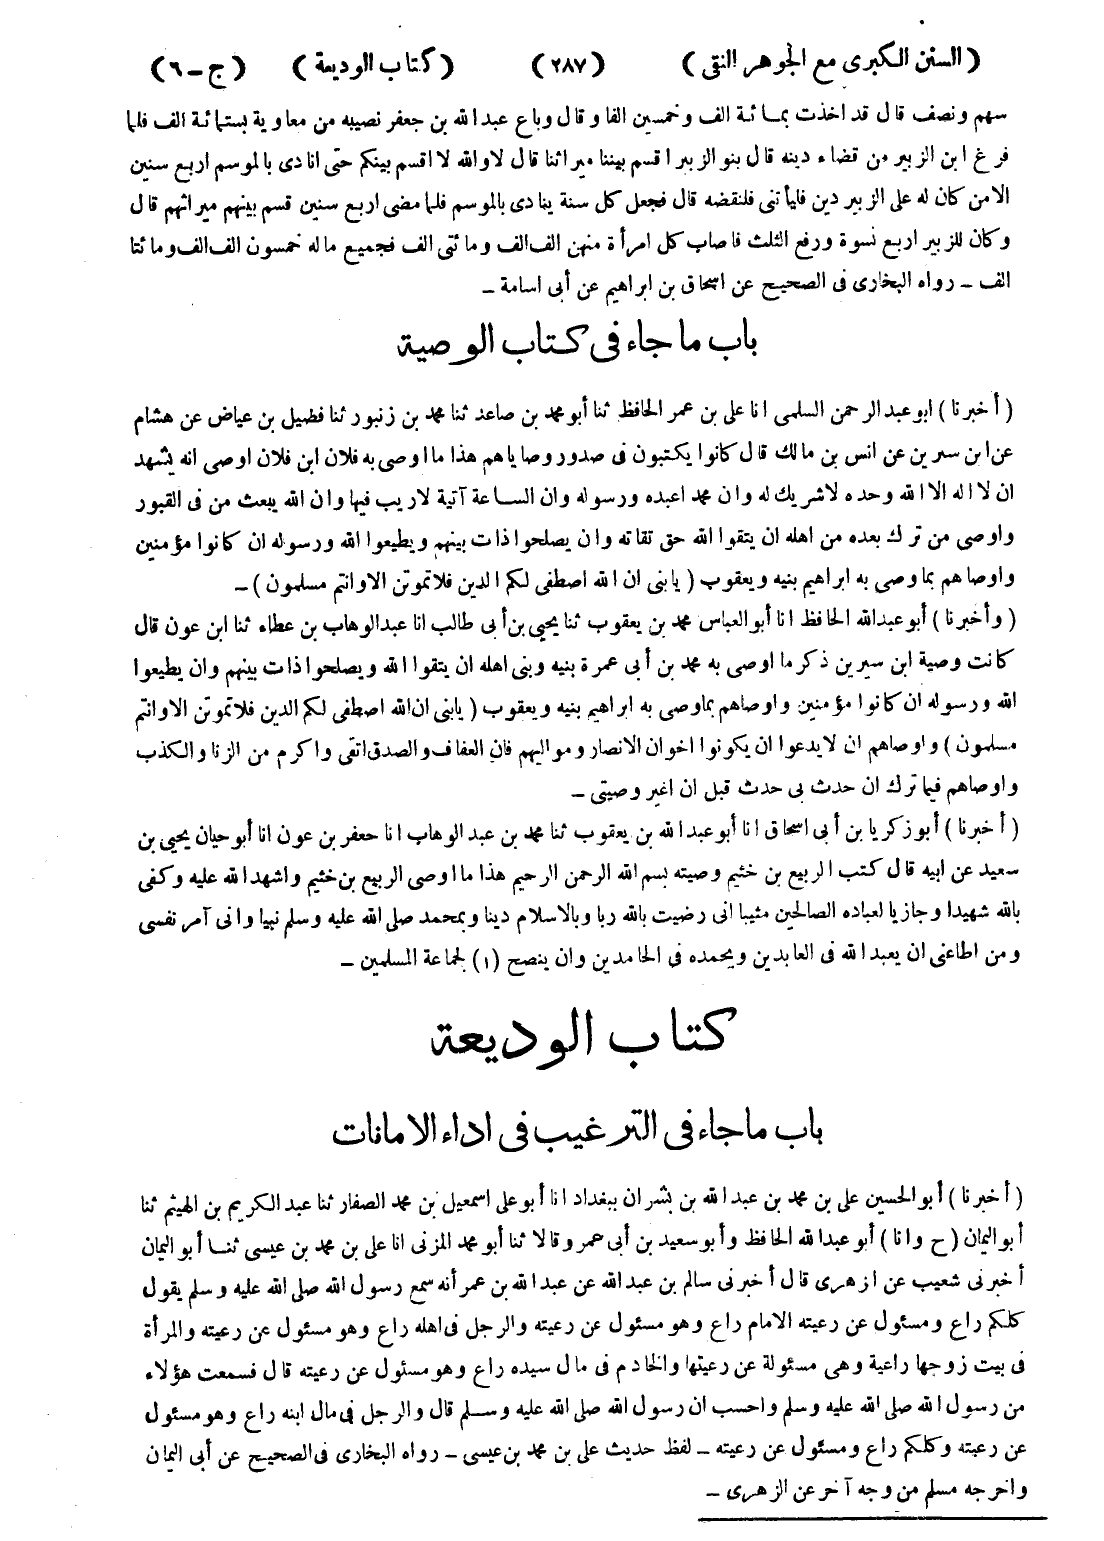 (السنن الكبرى مع الجوهر النقى) (٢٨٧) (كتاب الوديعة) (ج-٦)
سهم ونصف قال قد اخذت بمائة الف وخمسين الفا وقال وباع عبد الله بن جعفر نصيبه من معاوية بستمائة الف فلما
فرغ ابن الزبير من قضاء دينه قال بنو الزبير اقسم بيننا ميراثنا قال لا والله لا اقسم بينكم حتى انادى بالموسم اربع سنين
الا من كان له على الزبير دين فليأتنى فلنقضه قال فجعل كل سنة ينادى بالموسم فلما مضى اربع سنين قسم بينهم ميراثهم قال
وكان للزبير اربع نسوة ورفع الثلث فاصاب كل امرأة منهن الف الف ومائتى الف فجميع ماله خمسون الف الف ومائتا
الف - رواه البخارى فى الصحيح عن اسحاق بن ابراهيم عن أبى اسامة -
باب ما جاء فى كتاب الوصية
(أخبرنا) ابو عبد الرحمن السلمى انا على بن عمر الحافظ ثنا أبو محمد بن صاعد ثنا محمد بن زنبور ثنا فضيل بن عياض عن هشام
عن ابن سيرين عن انس بن مالك قال كانوا يكتبون فى صدور وصاياهم هذا ما اوصى به فلان ابن فلان اوصى انه يشهد
ان لا اله الا الله وحده لا شريك له وان محمد اعبده ورسوله وان الساعة آتية لا ريب فيها وان الله يبعث من فى القبور
واوصى من ترك بعده من اهله ان يتقوا الله حق تقاته وان يصلحوا ذات بينهم ويطيعوا الله ورسوله ان كانوا مؤمنين
واوصاهم بما وصى به ابراهيم بنيه ويعقوب (يابنى ان الله اصطفى لكم الدين فلا تموتن الا وانتم مسلمون) -
(وأخبرنا) أبو عبد الله الحافظ انا أبو العباس محمد بن يعقوب ثنا يحيى بن أبى طالب انا عبد الوهاب بن عطاء ثنا ابن عون قال
كانت وصية ابن سيرين ذكر ما اوصى به محمد بن أبى عمرة بنيه وبنى اهله ان يتقوا الله ويصلحوا ذات بينهم وان يطيعوا
الله ورسوله ان كانوا مؤمنين واوصاهم بما وصى به ابراهيم بنيه ويعقوب (يابنى ان الله اصطفى لكم الدين فلا تموتن الا وانتم
مسلمون) واوصاهم ان لا يدعوا ان يكونوا اخوان الانصار ومواليهم فان العفاف والصدق اتقى واكرم من الزنا والكذب
واوصاهم فيما ترك ان حدث بى حدث قبل ان اغير وصيتى -
(أخبرنا) أبو زكريا بن أبى اسحاق انا أبو عبد الله بن يعقوب ثنا محمد بن عبد الوهاب انا جعفر بن عون انا أبو حيان يحيى بن
سعيد عن ابيه قال كتب الربيع بن خثيم وصيته بسم الله الرحمن الرحيم هذا ما اوصى الربيع بن خثيم واشهد الله عليه وكفى
بالله شهيدا وجازيا لعباده الصالحين مثيبا انى رضيت بالله ربا وبالاسلام دينا وبمحمد صلى الله عليه وسلم نبيا وانى آمر نفسى
ومن اطاعنى ان يعبد الله فى العابدين ويحمده فى الحامدين وان ينصح (١) لجماعة المسلمين -
كتاب الوديعة
باب ما جاء فى الترغيب فى اداء الامانات
(أخبرنا) أبو الحسين على بن محمد بن عبد الله بن بشران ببغداد انا أبو على اسمعيل بن محمد الصفار ثنا عبد الكريم بن الهيثم ثنا
أبو اليمان (ح وانا) أبو عبد الله الحافظ وأبو سعيد بن أبى عمرو قالا ثنا أبو محمد المزنى انا على بن محمد بن عيسى ثنا أبو اليمان
أخبرنى شعيب عن ازهرى قال أخبرنى سالم بن عبد الله عن عبد الله بن عمر أنه سمع رسول الله صلى الله عليه وسلم يقول
كلكم راع ومسئول عن رعيته الامام راع وهو مسئول عن رعيته والرجل فى اهله راع وهو مسئول عن رعيته والمرأة
فى بيت زوجها راعية وهى مسئولة عن رعيتها والخادم فى مال سيده راع وهو مسئول عن رعيته قال فسمعت هؤلاء
من رسول الله صلى الله عليه وسلم واحسب ان رسول الله صلى الله عليه وسلم قال والرجل فى مال ابنه راع وهو مسئول
عن رعيته وكلكم راع ومسئول عن رعيته - لفظ حديث على بن محمد بن عيسى - رواه البخارى فى الصحيح عن أبى اليمان
واخرجه مسلم من وجه آخر عن الزهرى -